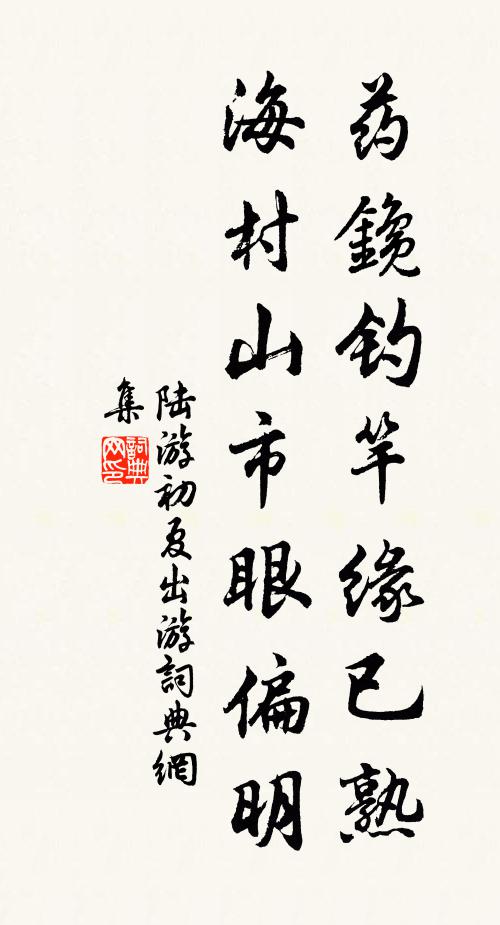 药鑱钓竿缘已熟
海村山市眼偏明
陆游初夏出游詞典網
集
詞典网印